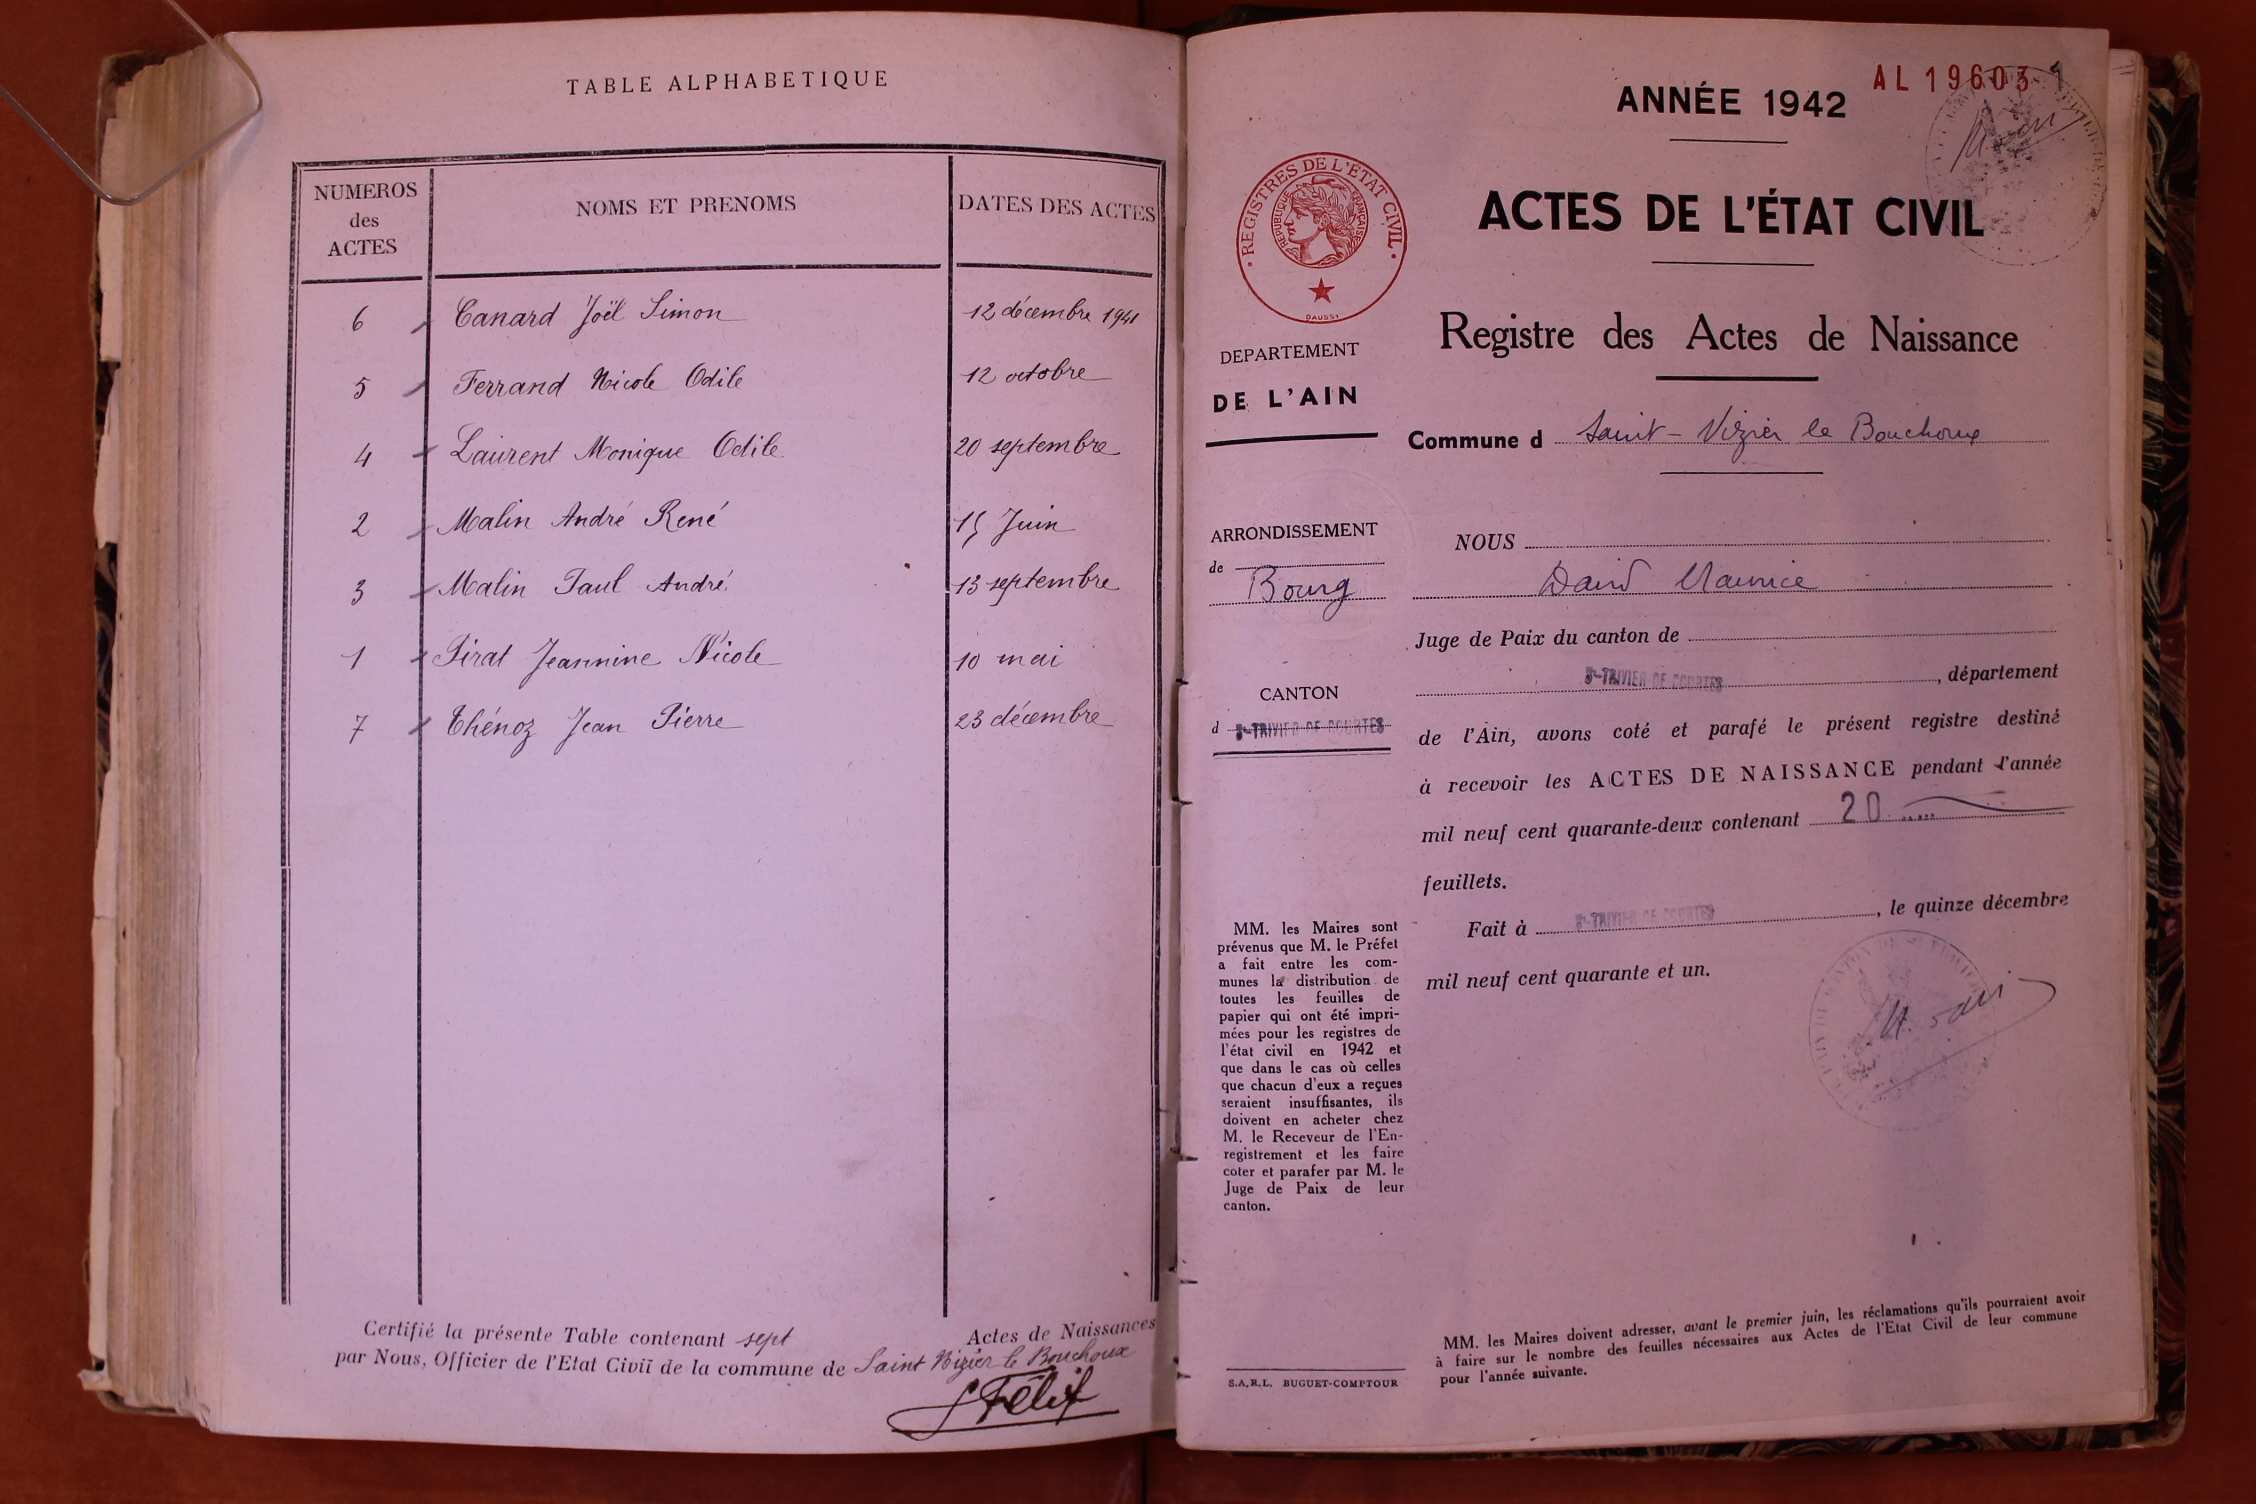 TABLE ALPHABETIQUE
NUMEROS
des
ACTES
NOMS ET PRENOMS
DATES DES ACTES
6 Canard Joël Simon 12 décembre 1941
5 Ferrand Nicole Odile 12 octobre
4 Laurent Monique Odile 20 septembre
2 Malin André René 15 Juin
3 Malin Paul André 13 septembre
1 Pirat Jeannine Nicole 10 mai
7 Thénoz Jean Pierre 23 décembre
Certifié la présente Table contenant sept Actes de Naissances
par Nous, Officier de l'Etat Civil de la commune de Saint Nizier le Bouchoux
Félix
AL 19603
ANNÉE 1942
ACTES DE L'ÉTAT CIVIL
Registre des Actes de Naissance
REGISTRES DE L'ÉTAT CIVIL
RÉPUBLIQUE FRANÇAISE
DAUSSY
DEPARTEMENT
DE L'AIN
Commune d Saint-Nizier le Bouchoux
ARRONDISSEMENT
de
Bourg
CANTON
d St-TRIVIER DE COURTES
NOUS
David Maurice
Juge de Paix du canton de
St-TRIVIER DE COURTES, département
de l'Ain, avons coté et parafé le présent registre destiné
à recevoir les ACTES DE NAISSANCE pendant l'année
mil neuf cent quarante-deux contenant 20
feuillets.
Fait à St-TRIVIER DE COURTES, le quinze décembre
mil neuf cent quarante et un.
MM. les Maires sont
prévenus que M. le Préfet
a fait entre les com-
munes la distribution de
toutes les feuilles de
papier qui ont été impri-
mées pour les registres de
l'état civil en 1942 et
que dans le cas où celles
que chacun d'eux a reçues
seraient insuffisantes, ils
doivent en acheter chez
M. le Receveur de l'En-
registrement et les faire
coter et parafer par M. le
Juge de Paix de leur
canton.
S.A.R.L. BUGUET-COMPTOUR
MM. les Maires doivent adresser, avant le premier juin, les réclamations qu'ils pourraient avoir
à faire sur le nombre des feuilles nécessaires aux Actes de l'Etat Civil de leur commune
pour l'année suivante.